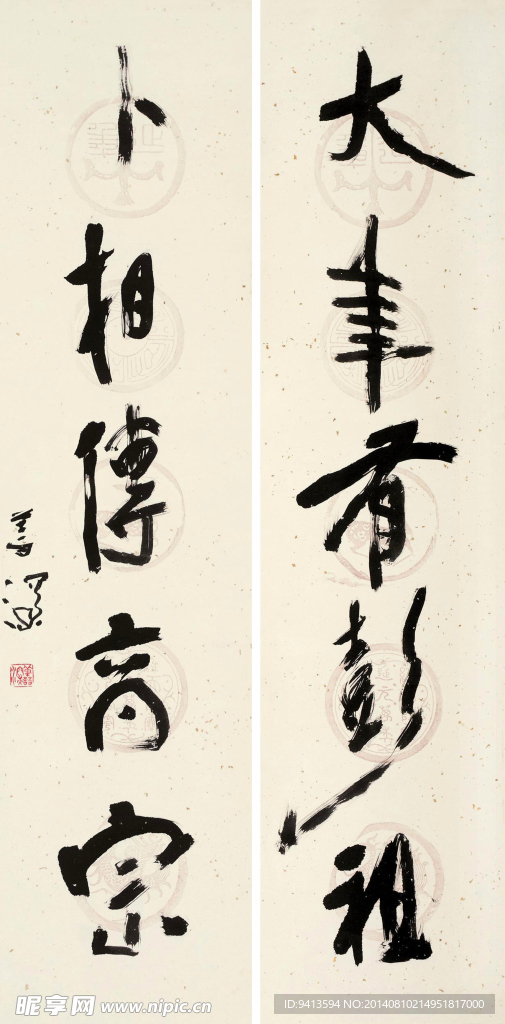 大年有彭祖
卜相傳商宗
昵享网 www.nipic.cn
ID:9413594 NO:20140810214951817000